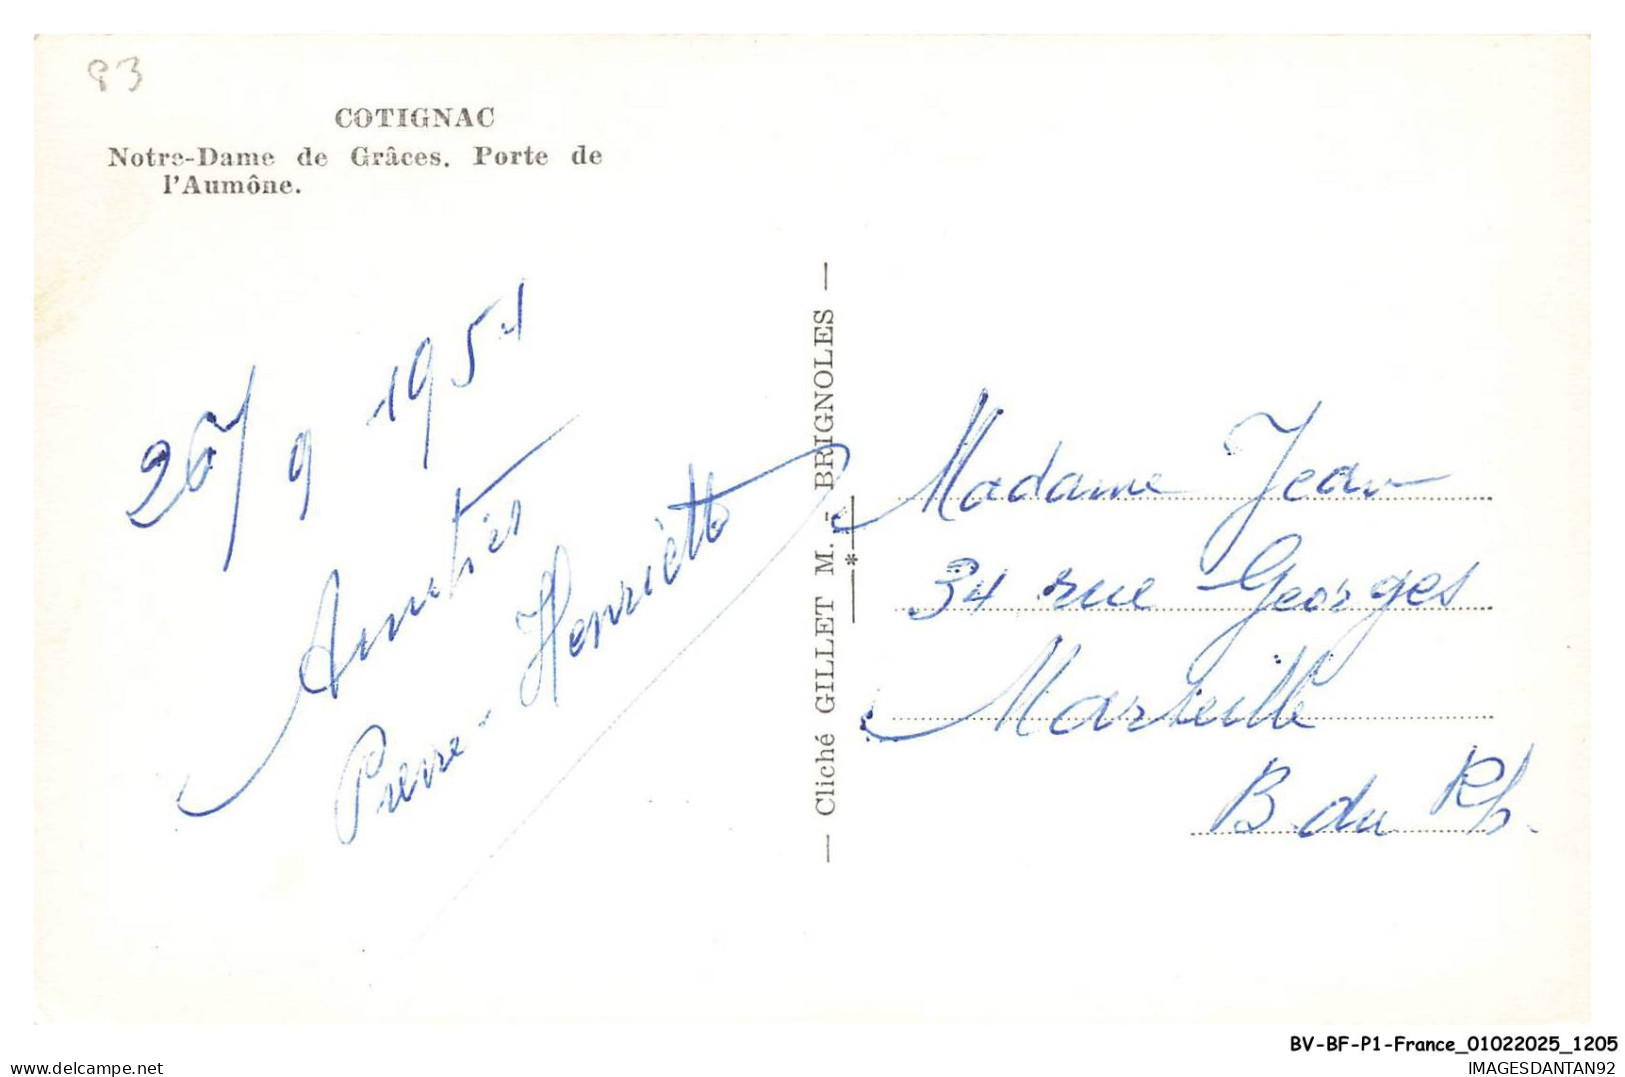 83
COTIGNAC
Notre-Dame de Grâces. Porte de
l'Aumône.
26/9 1951
Amitiés
Pierre-Henriette
— Cliché GILLET M. - BRIGNOLES —
*
Madame Jean
34 rue Georges
Marseille
B. du Rh.
BV-BF-P1-France_01022025_1205
IMAGESDANTAN92
delcampe.net